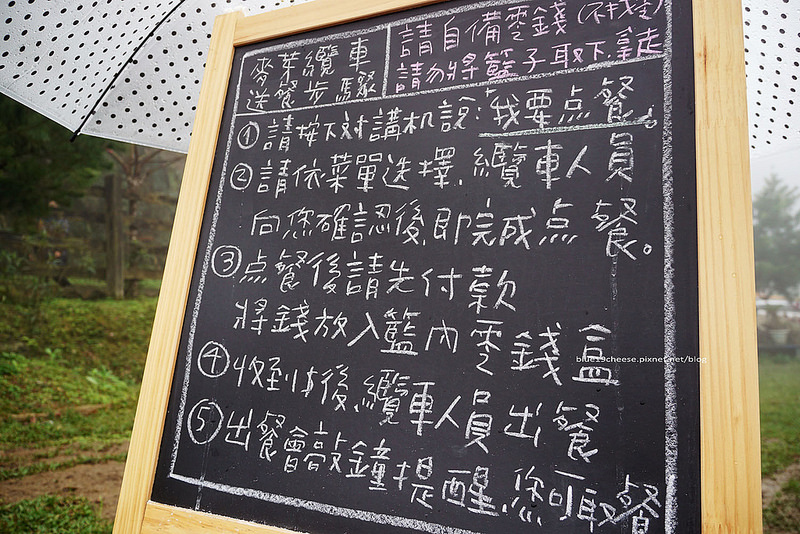 麥菜纜車
送餐步驟
請自備零錢(不找零)
請勿將籃子取下拿走
①請按下对講机說:我要点餐。
②請依菜單选擇,纜車人員
向您確認後,即完成点餐。
③点餐後請先付款
將錢放入籃內零錢盒
④收到$後,纜車人員出餐
⑤出餐會敲鐘提醒,您可取餐
blue19cheese.pixnet.net/blog